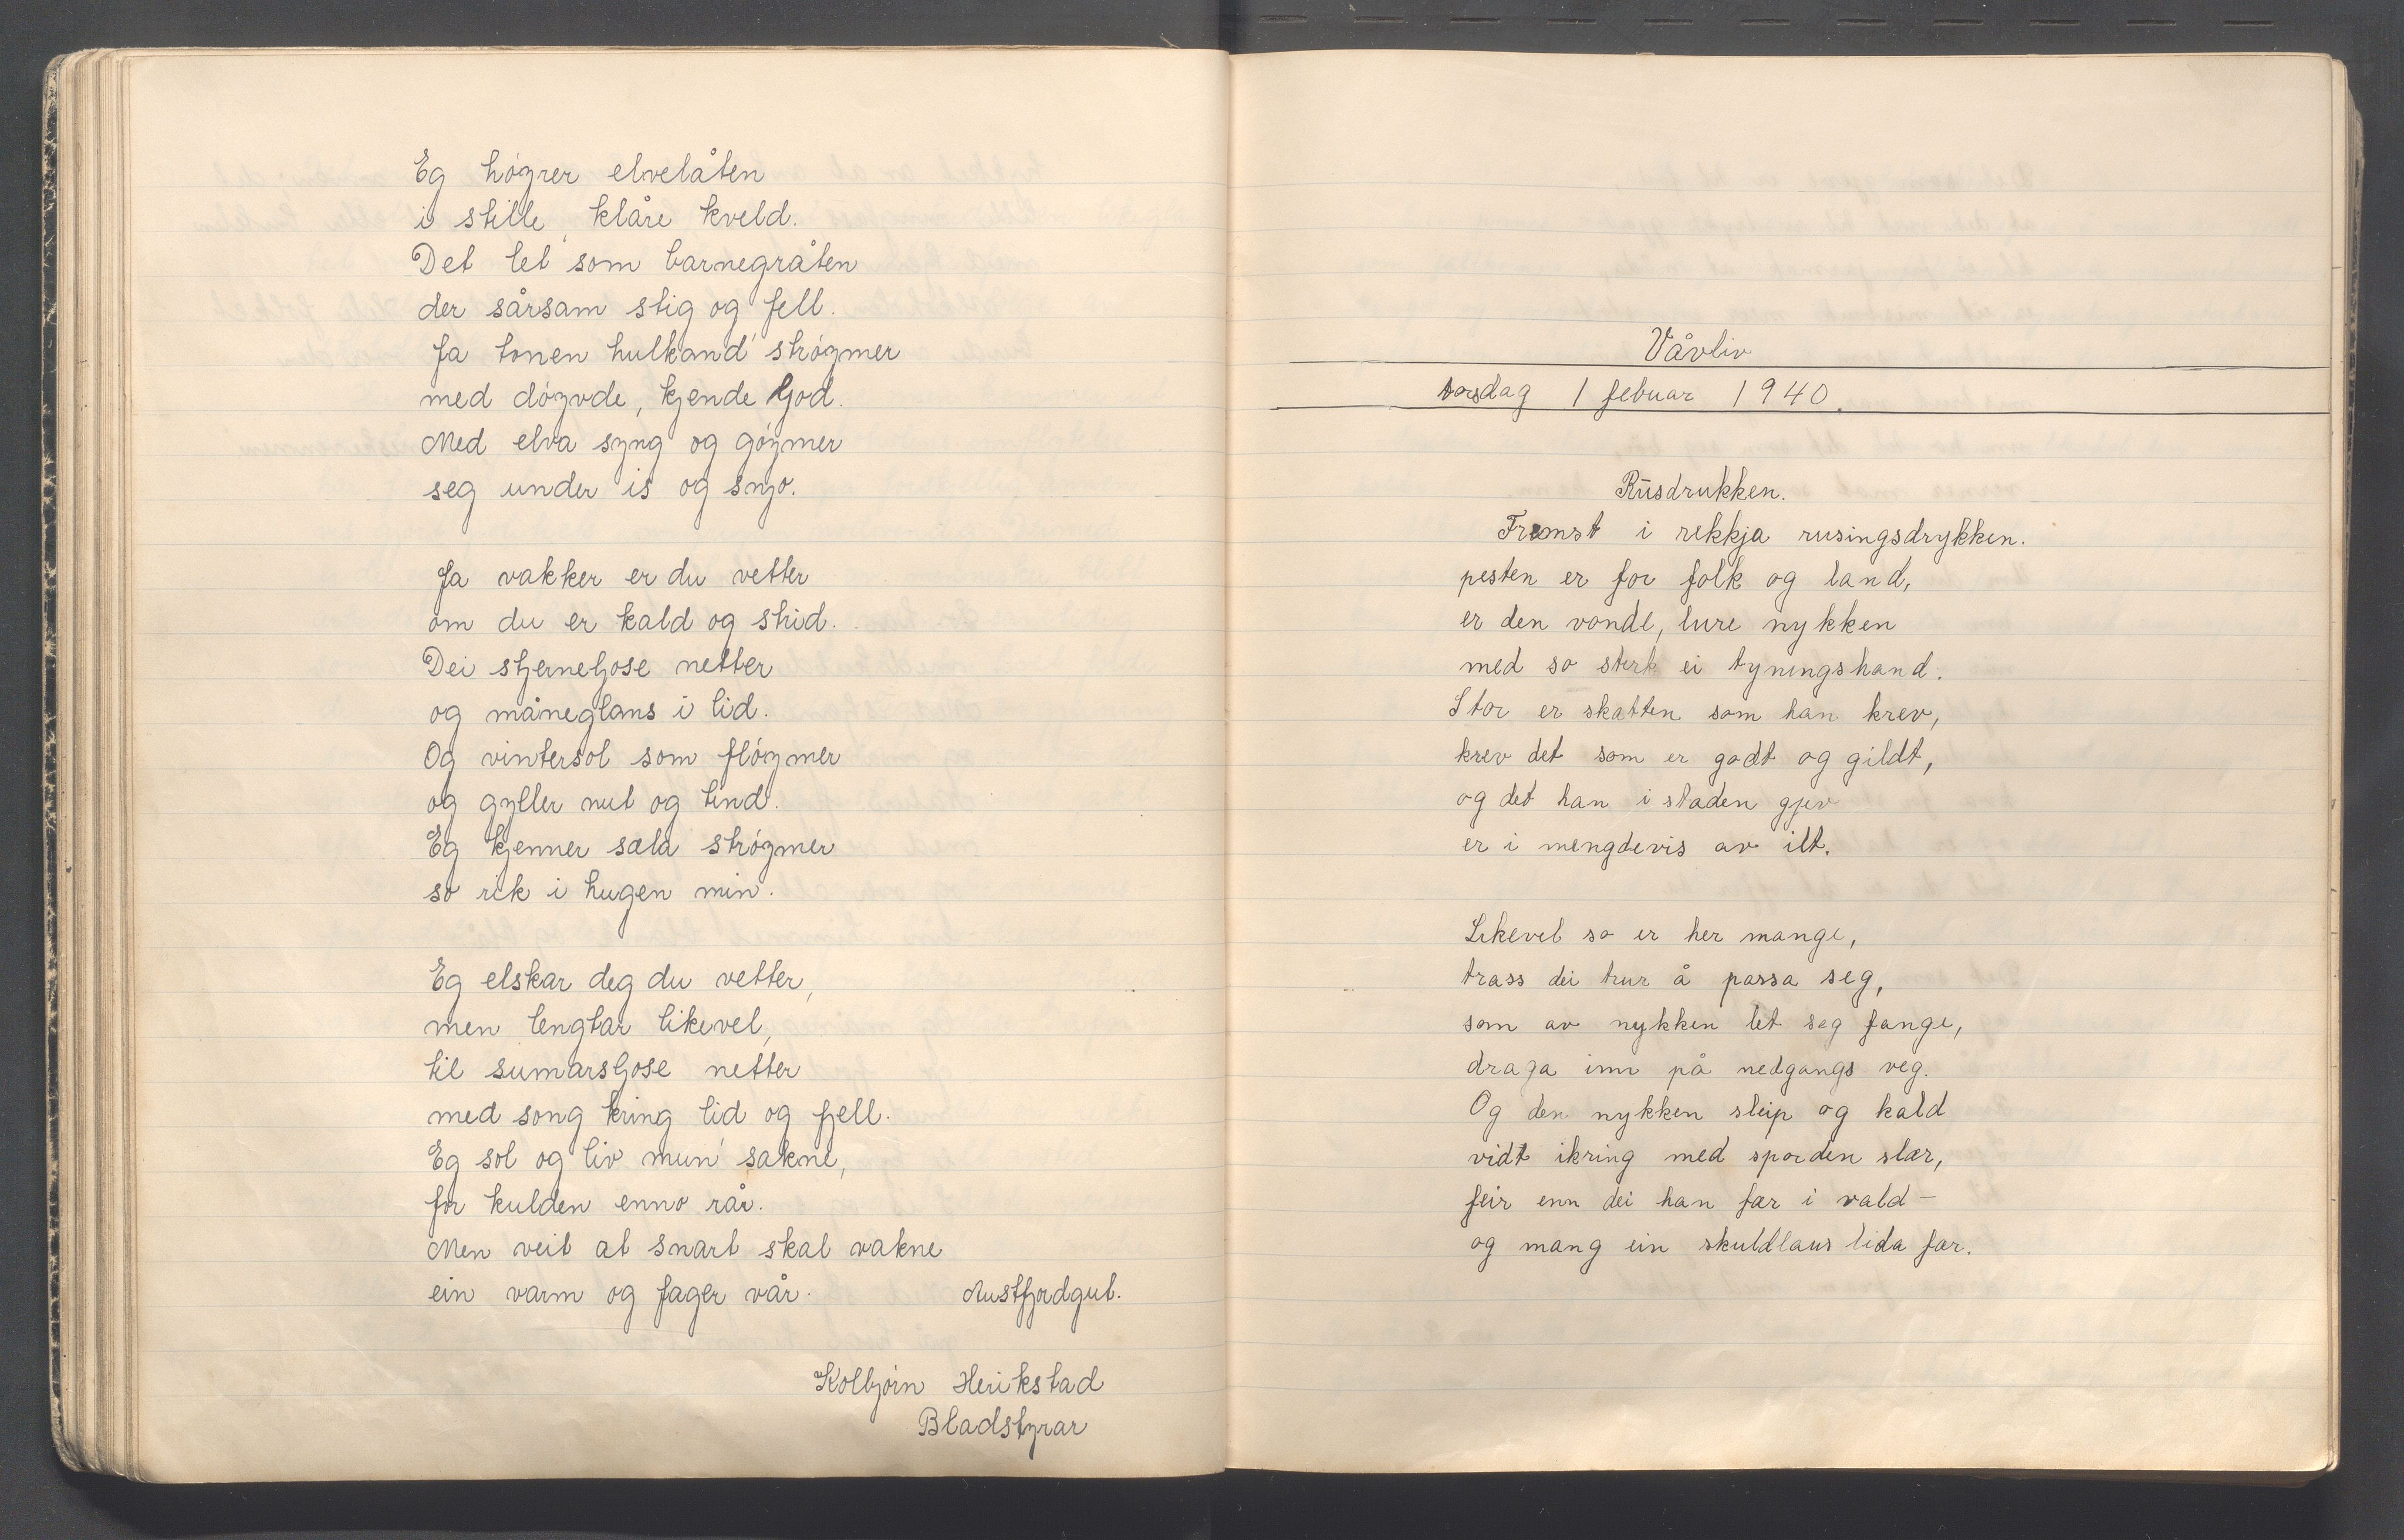 Eg høyrer elvelåten
i stille, klåre kveld.
Det let som barnegråten
der sårsam stig og fell.
Ja tonen hulkand' strøymer
med døyvde, kjende ljod.
Med elva syng og gøymer
seg under is og snjo.
Ja vakker er du vetter
om du er kald og strid.
Dei stjerneljose netter
og måneglans i lid.
Og vintersol som fløymer
og gyller nut og tind.
Eg kjenner sæla strøymer
so rik i hugen min.
Eg elskar deg du vetter,
men lengtar likevel,
til sumarsljose netter
med song kring lid og fjell.
Eg sol og liv mun' sakne,
for kulden enno rår.
Men veit at snart skal vakne
ein varm og fager vår.
Austfjordgut.
Kolbjørn Herikstad
Bladstyrar
Våvliv
torsdag 1 febuar 1940.
Rusdrukken.
Fremst i rekkja rusingsdrykken.
pesten er for folk og land,
er den vonde, lure nykken
med so sterk ei tyningshand.
Stor er skatten som han krev,
krev det som er godt og gildt,
og det han i staden gjev
er i mengdevis av ilt.
Likevel so er her mange,
trass dei trur å passa seg,
som av nykken let seg fange,
draga inn på nedgangs veg.
Og den nykken sleip og kald
vidt ikring med sporden slær,
feir enn dei han fær i vald –
og mang ein skuldlaus lida fær.